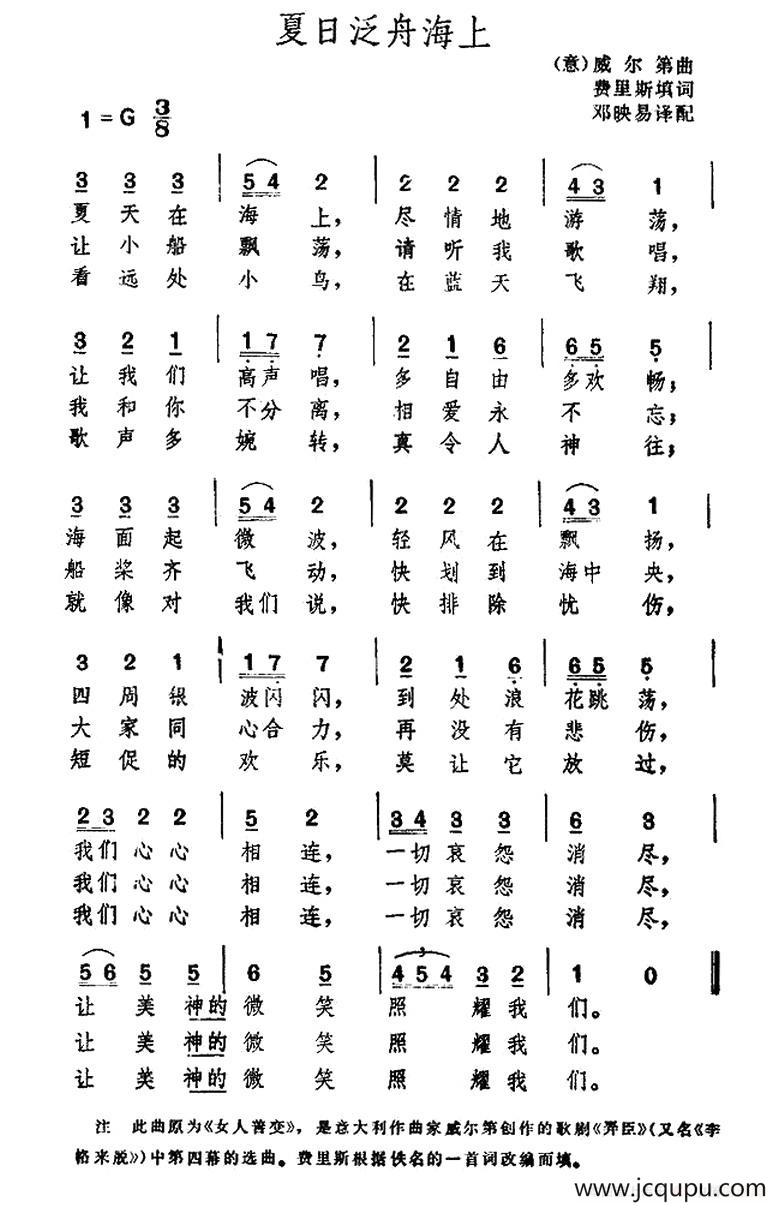 夏日泛舟海上
(意)威尔第曲
费里斯填词
邓映易译配
1=G 3/8
3 3 3 | 54 2 | 2 2 2 | 43 1 |
夏天在海上,尽情地游荡,
让小船飘荡,请听我歌唱,
看远处小鸟,在蓝天飞翔,
3 2 1 | 17 7 | 2 1 6 | 65 5 |
让我们高声唱,多自由多欢畅;
我和你不分离,相爱永不忘;
歌声多婉转,真令人神往;
3 3 3 | 54 2 | 2 2 2 | 43 1 |
海面起微波,轻风在飘扬,
船桨齐飞动,快划到海中央,
就像对我们说,快排除忧伤,
3 2 1 | 17 7 | 2 1 6 | 65 5 |
四周银波闪闪,到处浪花跳荡,
大家同心合力,再没有悲伤,
短促的欢乐,莫让它放过,
23 2 2 | 5 2 | 34 3 3 | 6 3 |
我们心心相连,一切哀怨消尽,
我们心心相连,一切哀怨消尽,
我们心心相连,一切哀怨消尽,
56 5 5 | 6 5 | 3 454 3 2 | 1 0 ‖
让美神的微笑照耀我们。
让美神的微笑照耀我们。
让美神的微笑照耀我们。
注 此曲原为《女人善变》,是意大利作曲家威尔第创作的歌剧《弄臣》(又名《李
格来脱》)中第四幕的选曲。费里斯根据佚名的一首词改编而填。
www.jcqupu.com